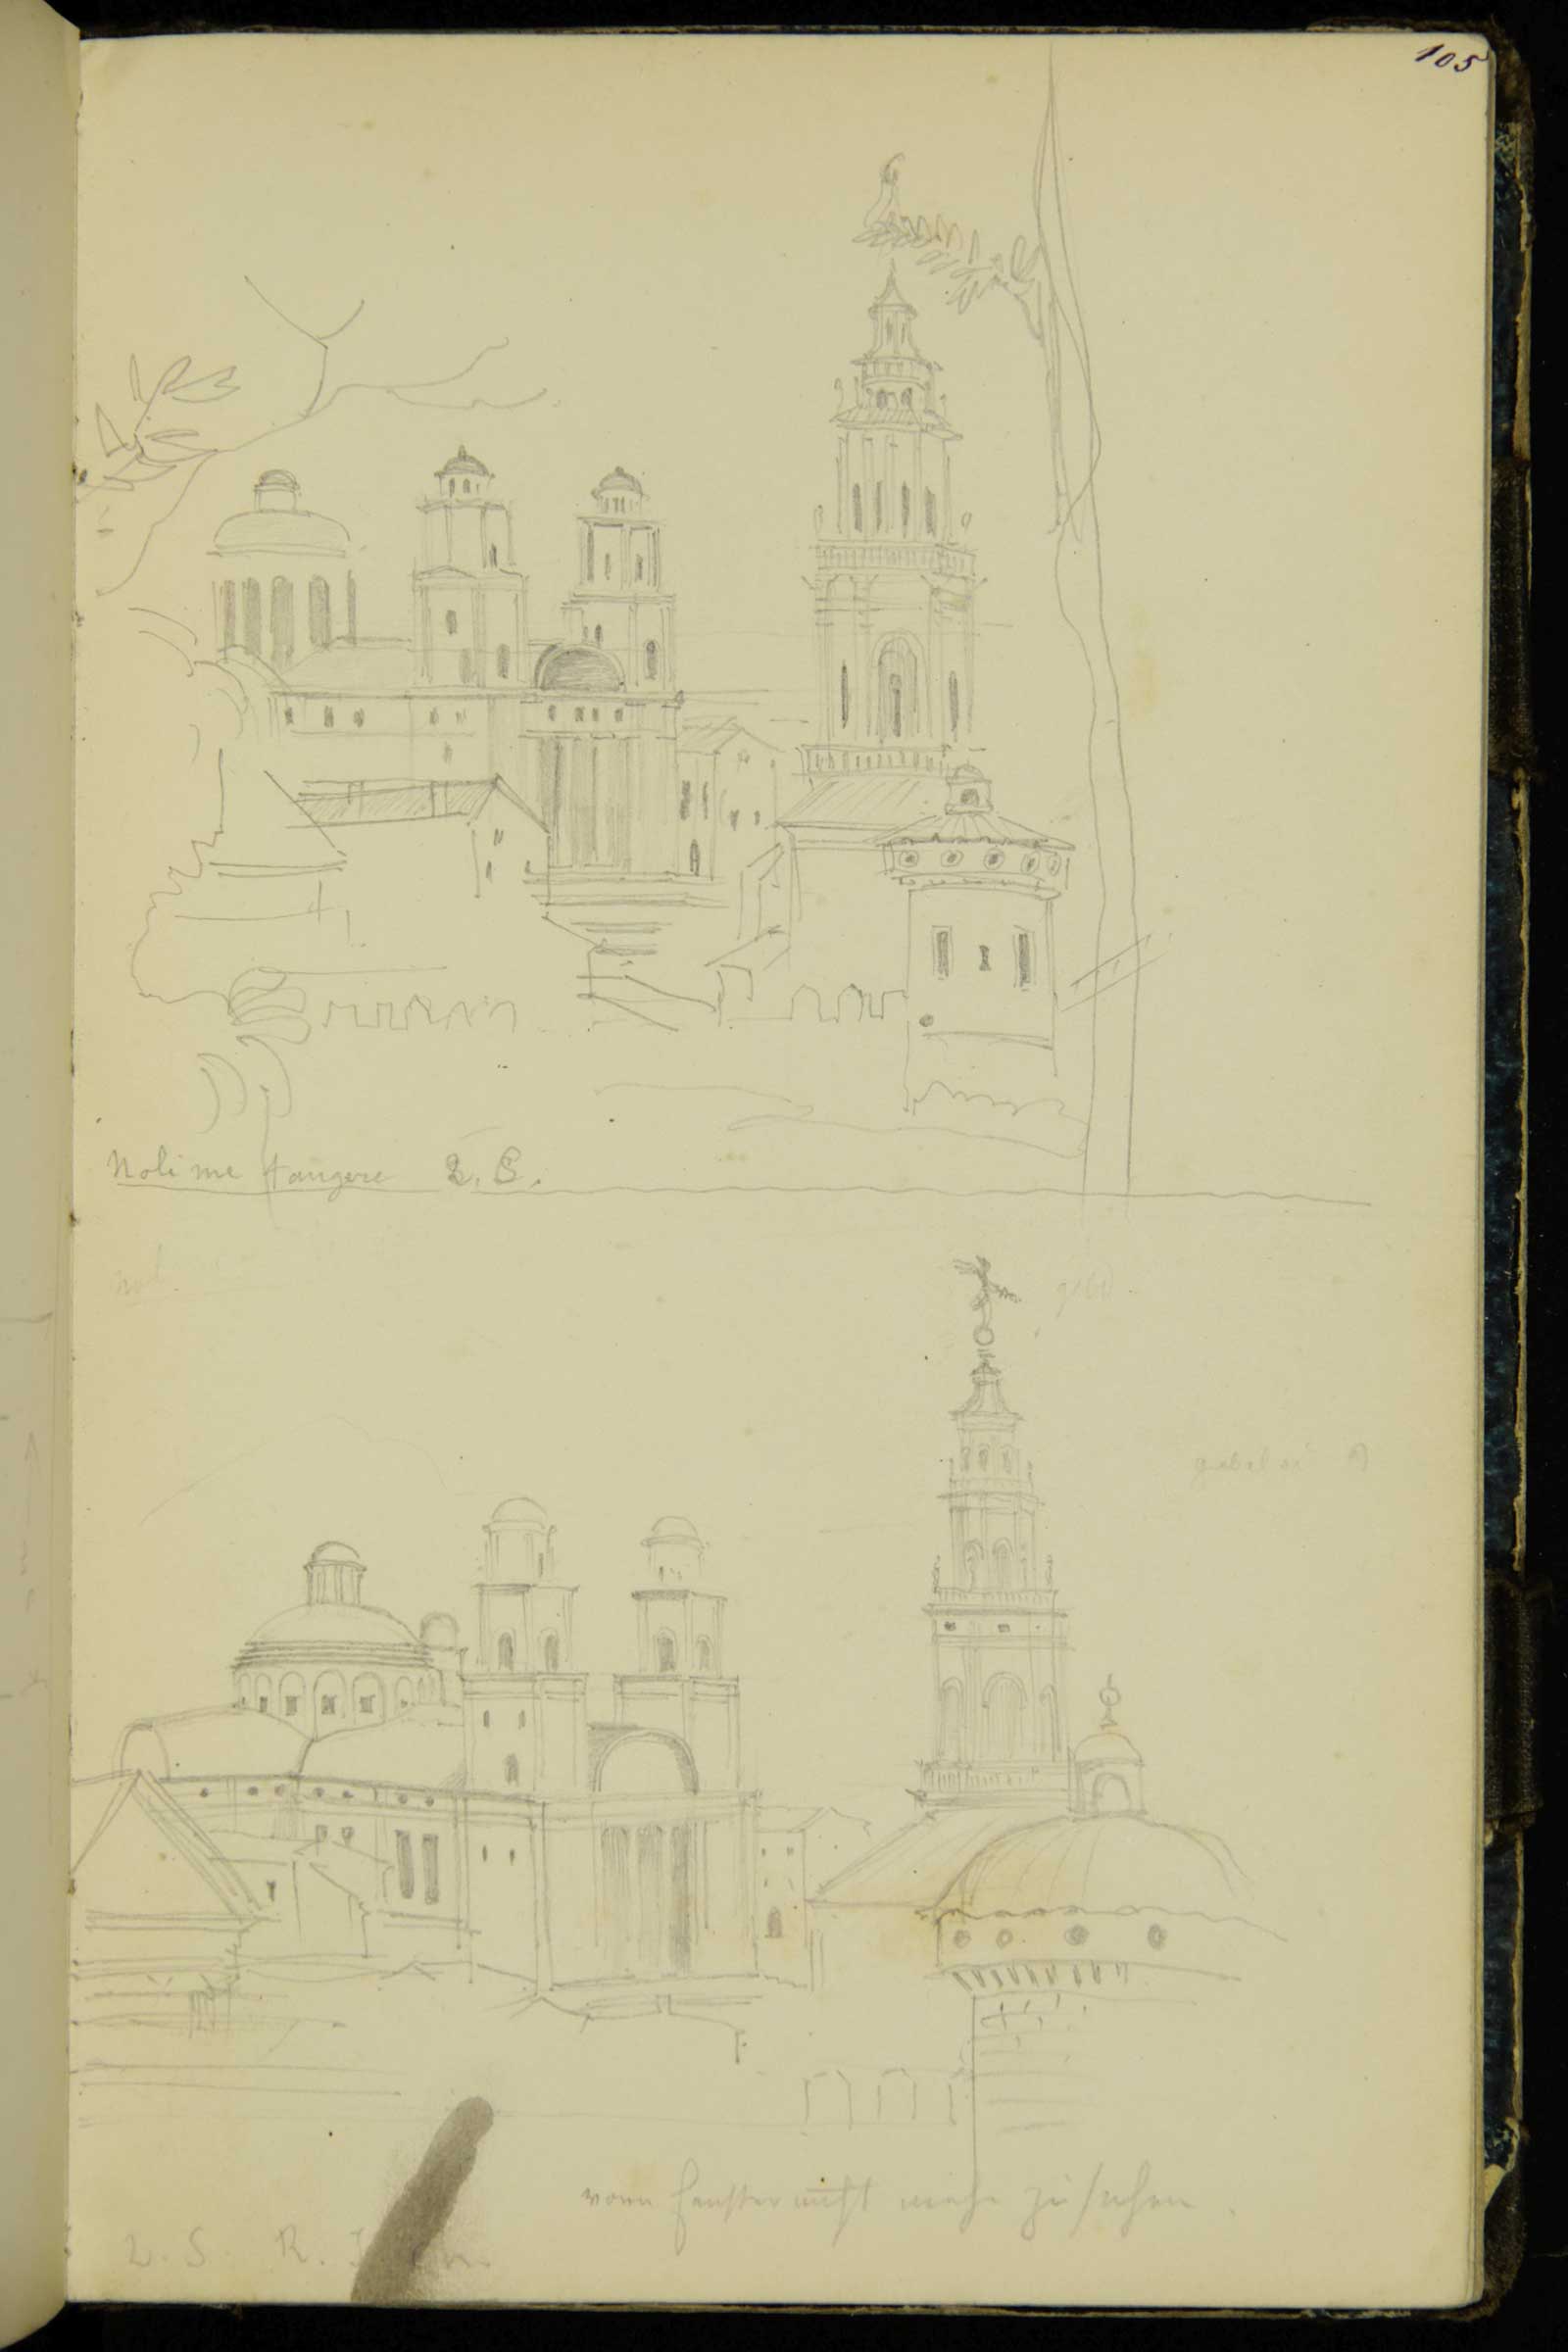 105
Noli me tangere L. S.
Nol.
gold
vom Fenster nicht mehr zu sehen.
L. S. R.